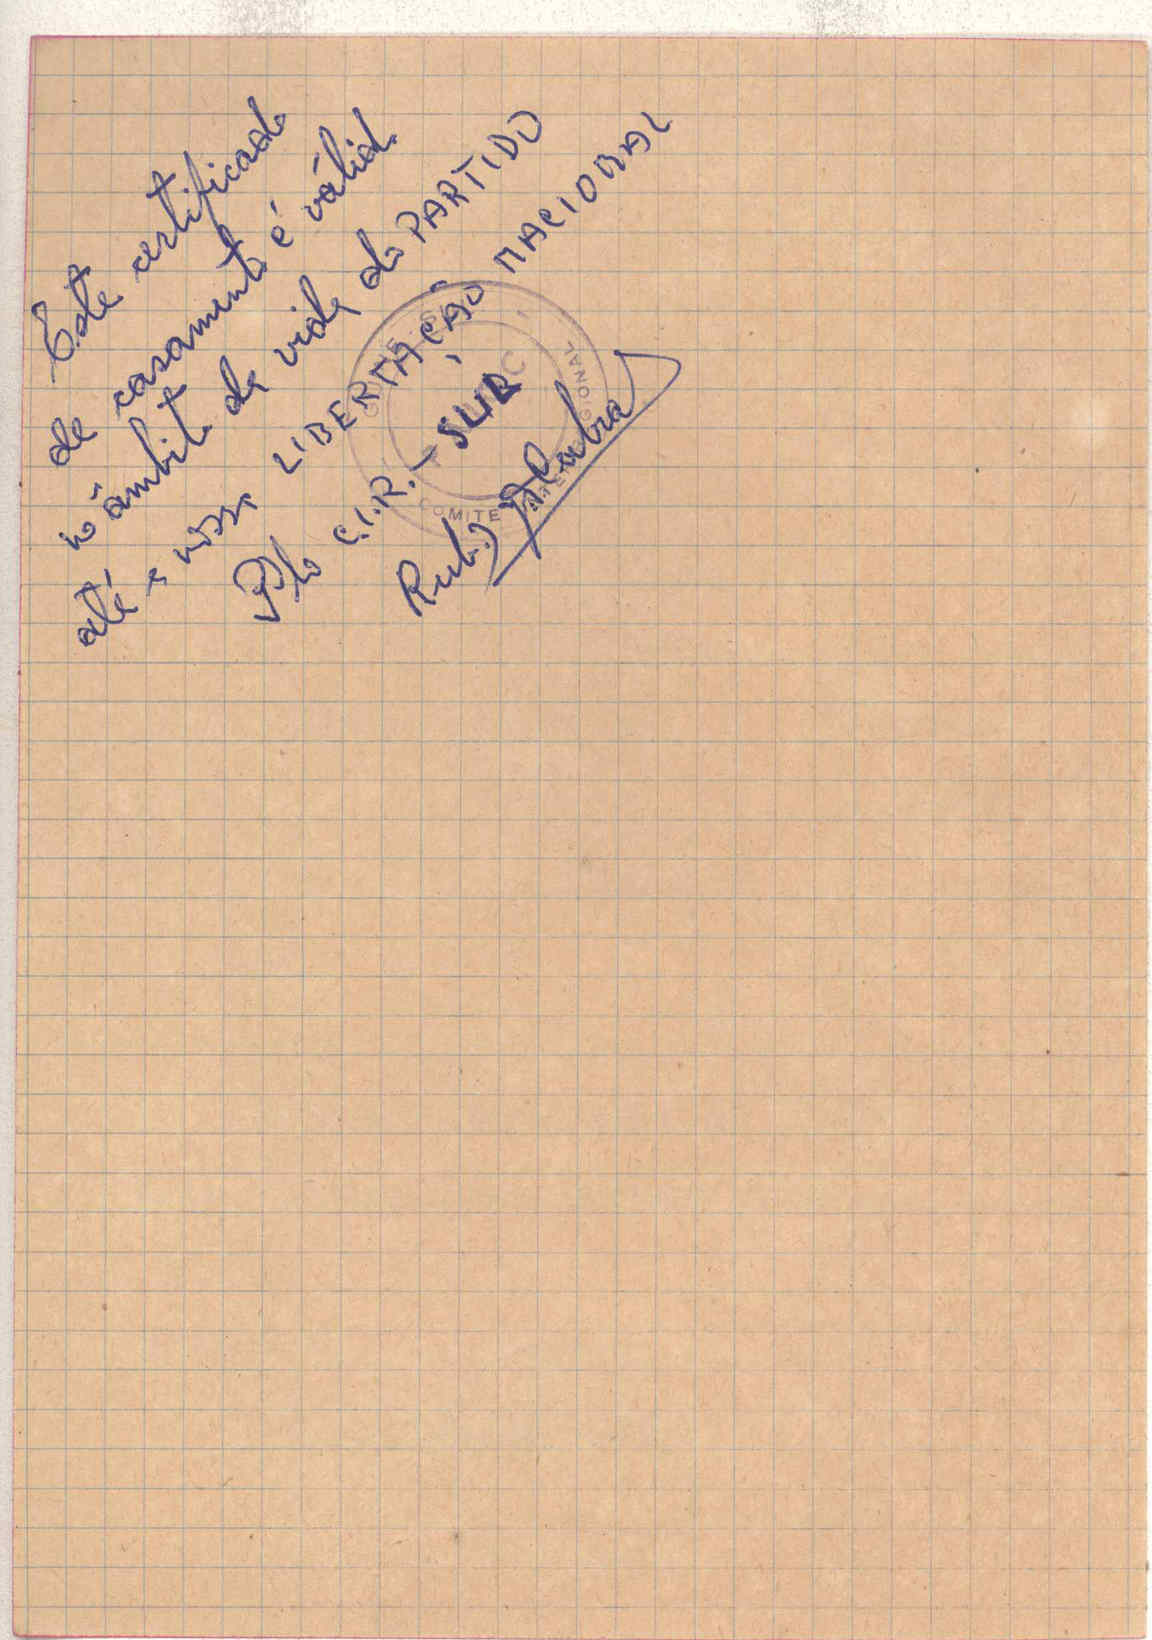 Este certificado
de casamento é válido
no âmbito da vida do PARTIDO
até a nossa LIBERTAÇÃO NACIONAL
Plo C.I.R. - SUL
COMITE
REGIONAL